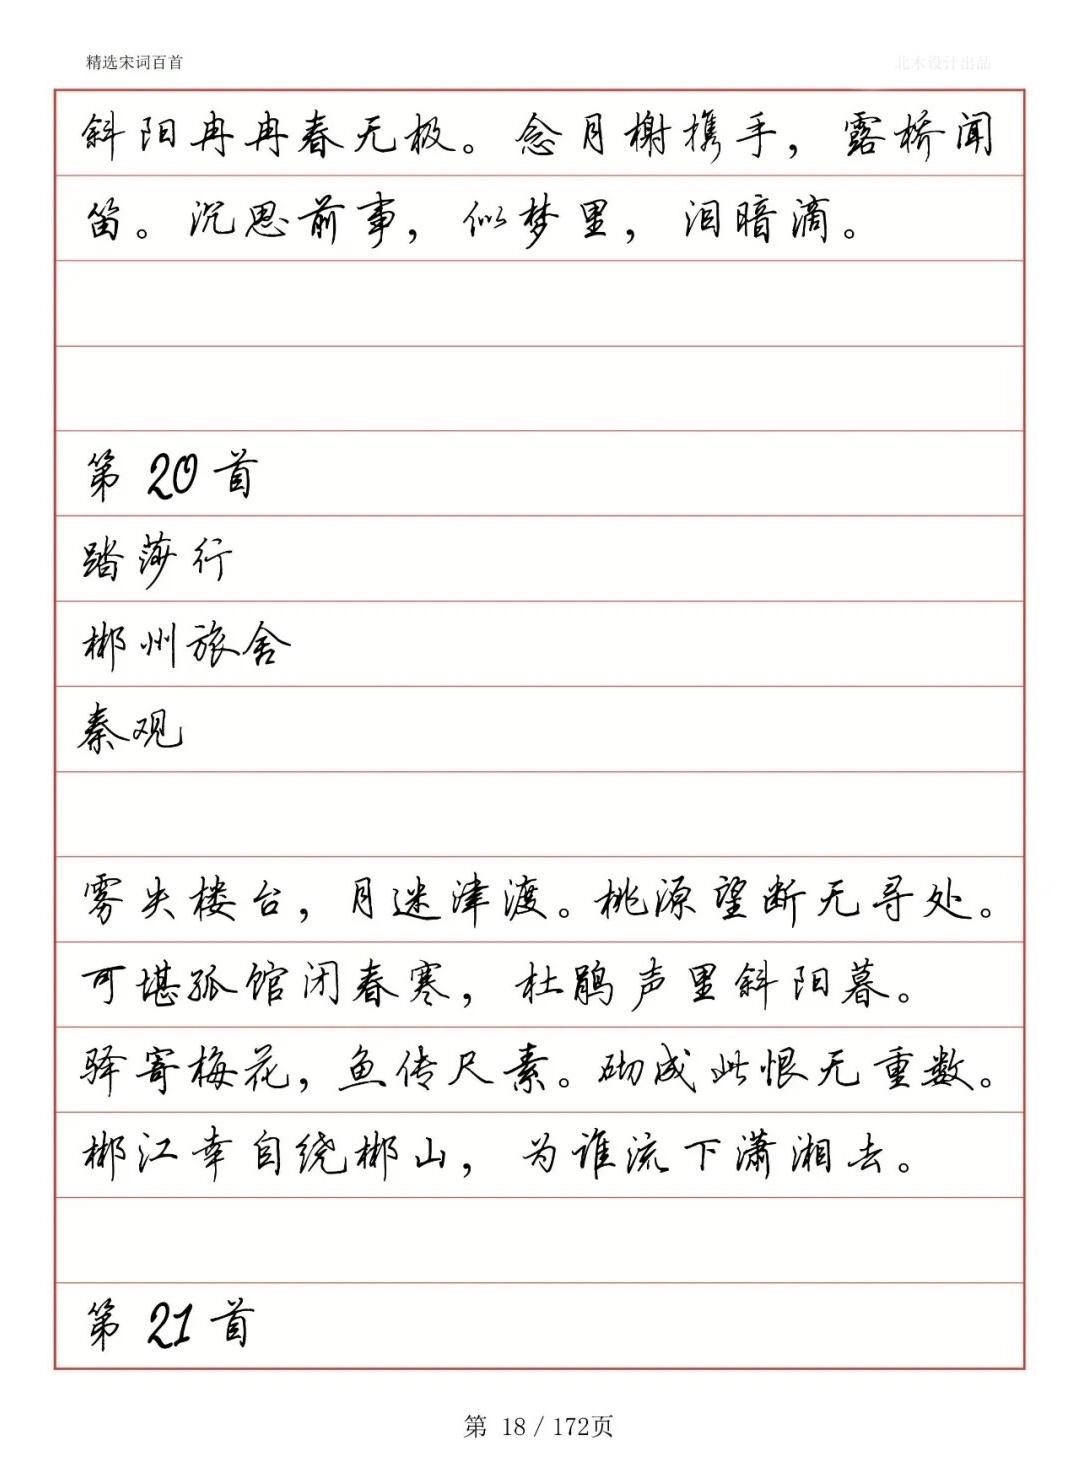 精选宋词百首
北木设计出品
斜阳冉冉春无极。念月榭携手，露桥闻
笛。沉思前事，似梦里，泪暗滴。
第 20 首
踏莎行
郴州旅舍
秦观
雾失楼台，月迷津渡。桃源望断无寻处。
可堪孤馆闭春寒，杜鹃声里斜阳暮。
驿寄梅花，鱼传尺素。砌成此恨无重数。
郴江幸自绕郴山，为谁流下潇湘去。
第 21 首
第 18 / 172页